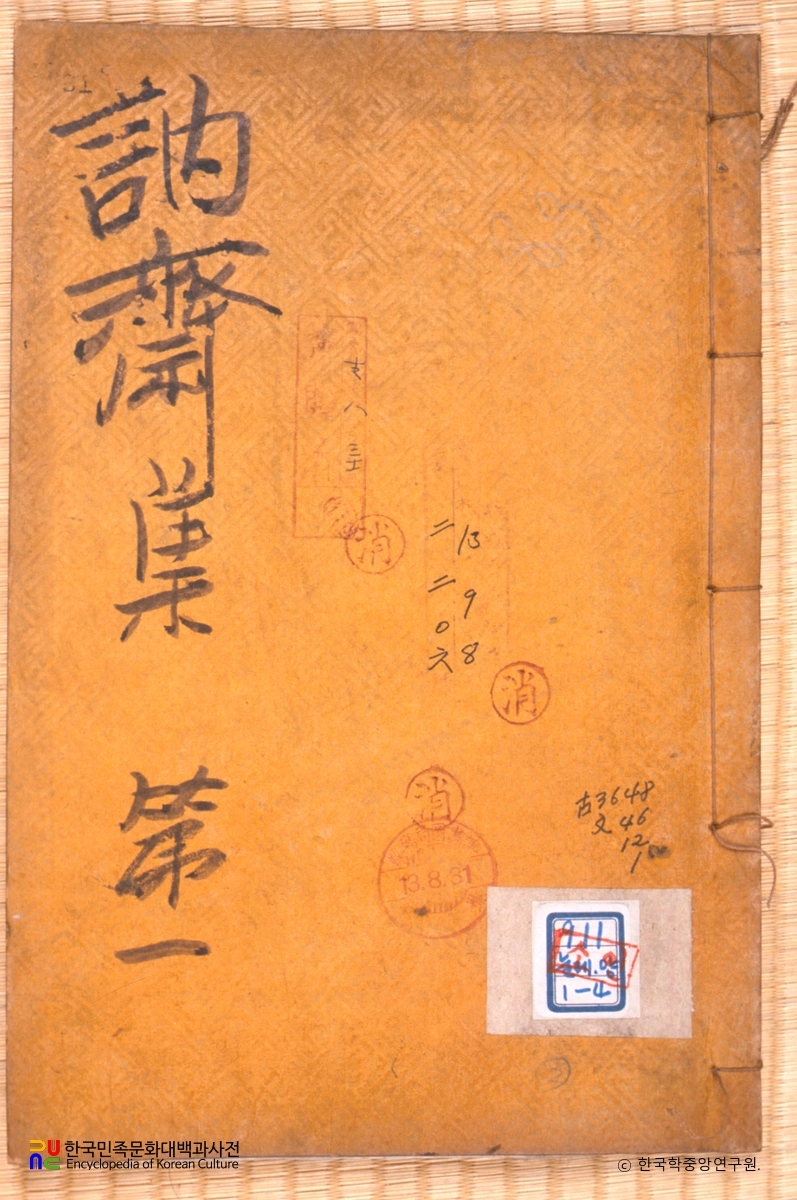 訥齋集 第一
消
13 9 8
二二0六
消
消
13.8.31
古3648
文46
12
1
911
눌재.양
1-4
한국민족문화대백과사전
Encyclopedia of Korean Culture
© 한국학중앙연구원.